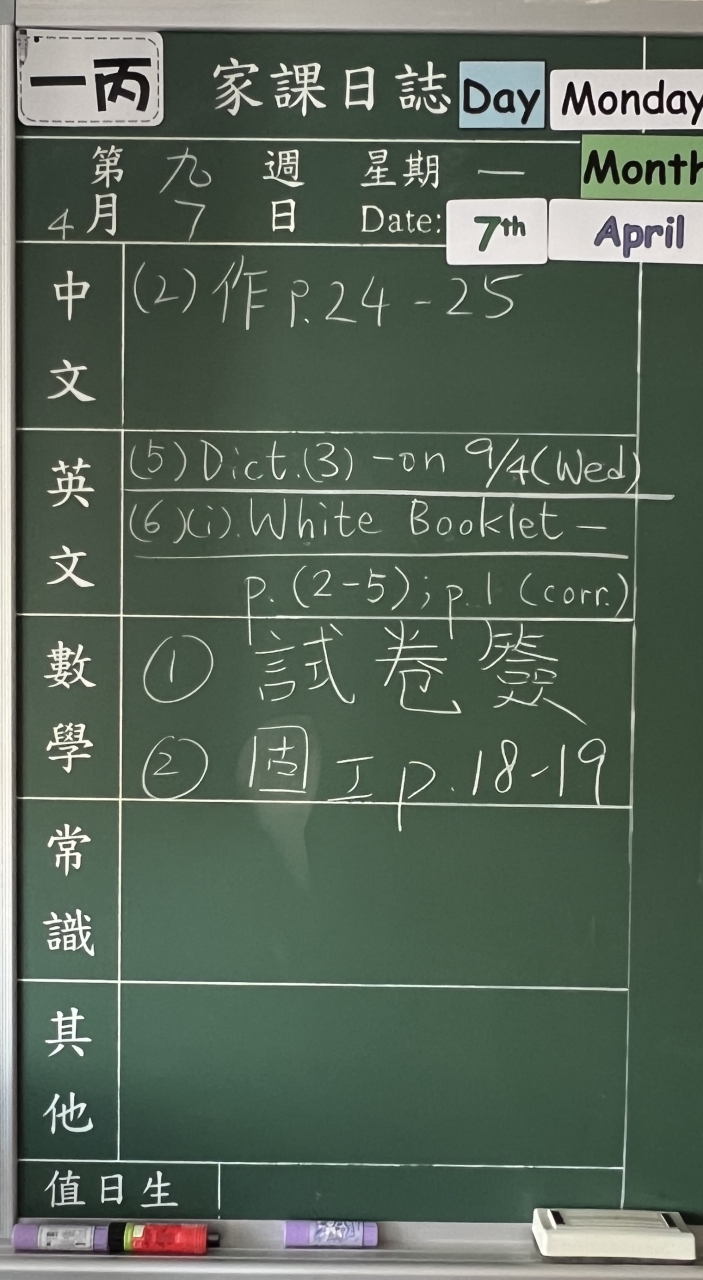 一丙 家課日誌 Day Monday
第九週 星期一 Month
4月7日 Date: 7th April
中文 (2)作P.24-25
英文 (5)Dict.(3)-on 9/4(Wed)
(6)(i).White Booklet-
p.(2-5);p.1(corr.)
數學 ① 試卷簽
② 固工p.18-19
常識
其他
值日生